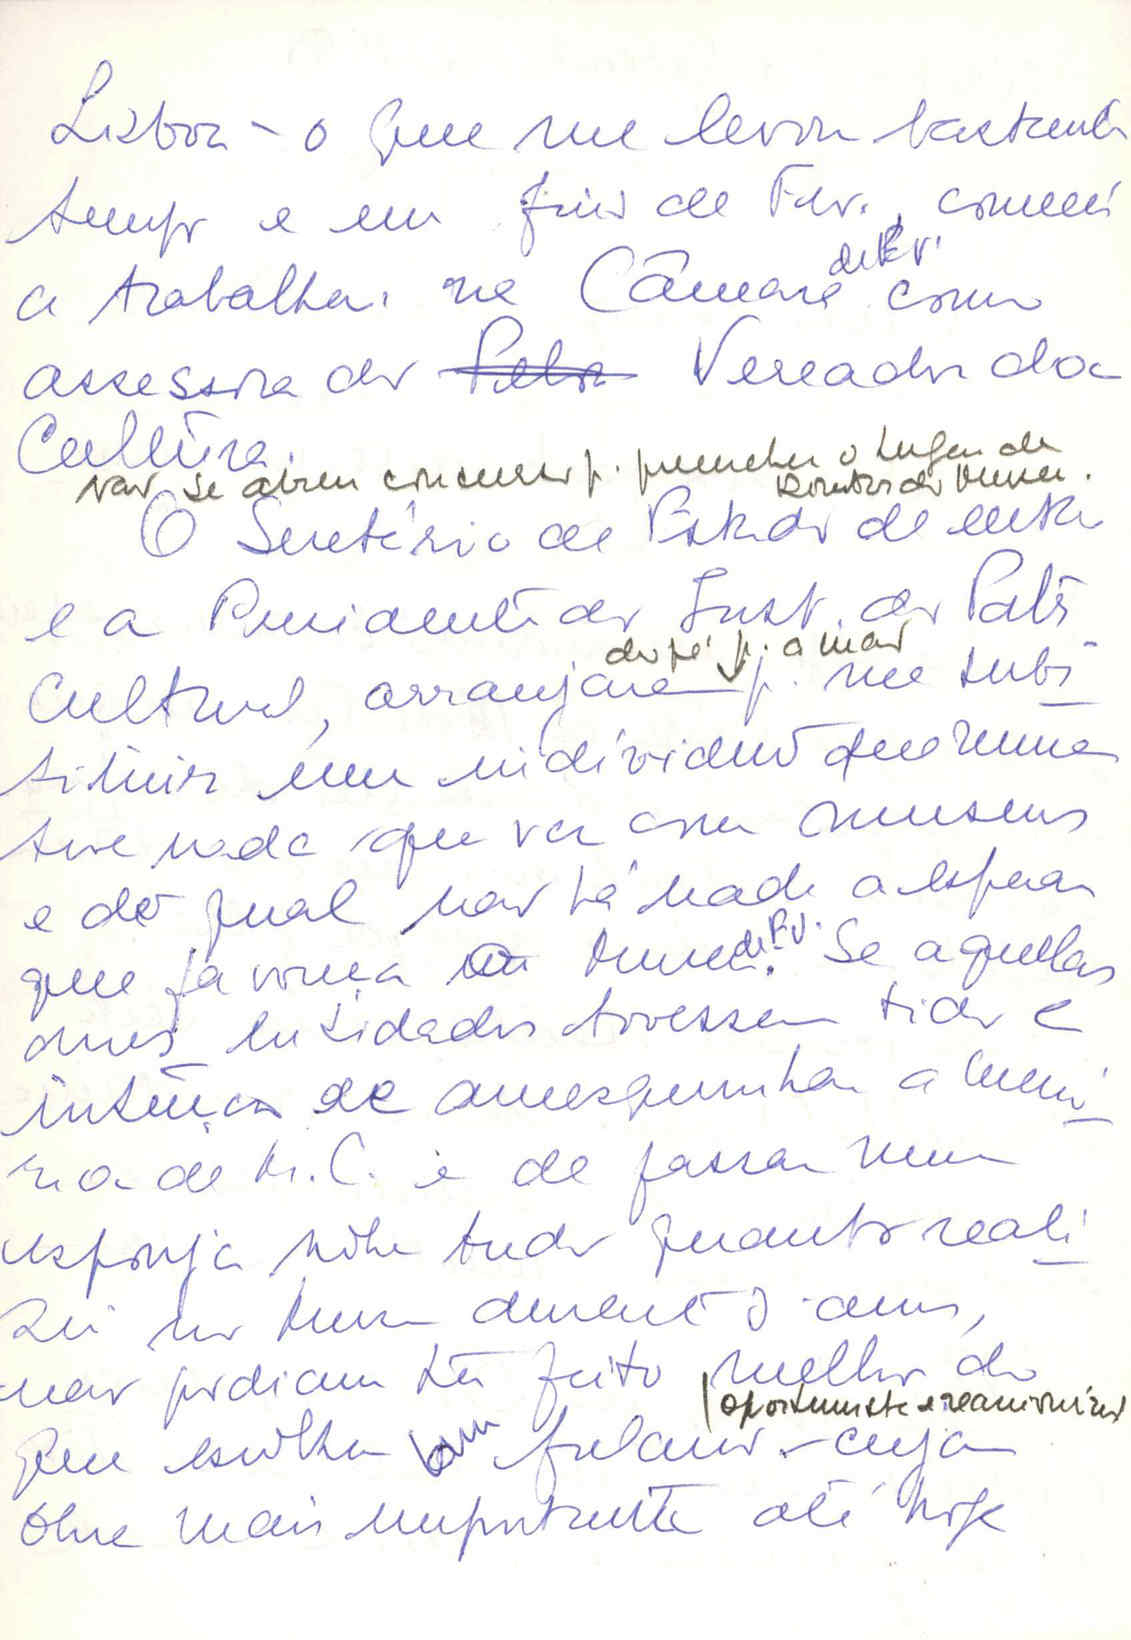 Lisboa – o que me levou bastante
tempo e em fins de Fev., comecei
a trabalhar na Câmara de P.V. como
assessora do Vereador da
Cultura.
Não se abriu concurso p. preencher o lugar de
Director do Museu.
O Secretário de Estado de então
e a Presidente do Inst. do Patr.
Cultural, arranjaram do pé p. a mão p. me subs
tituir um indivíduo que nunca
teve nada que ver com museus
e do qual não há nada a esperar
que favoreça o Museu de P.V. Se aquelas
duas entidades tivessem tido a
intenção de amesquinhar a memó
ria de M.C. e de passar uma
esponja sobre tudo quanto reali
zei no Museu durante anos,
não podiam ter feito melhor do
que escolher um fulano oportunista e reaccionário – cuja
obra mais importante até hoje